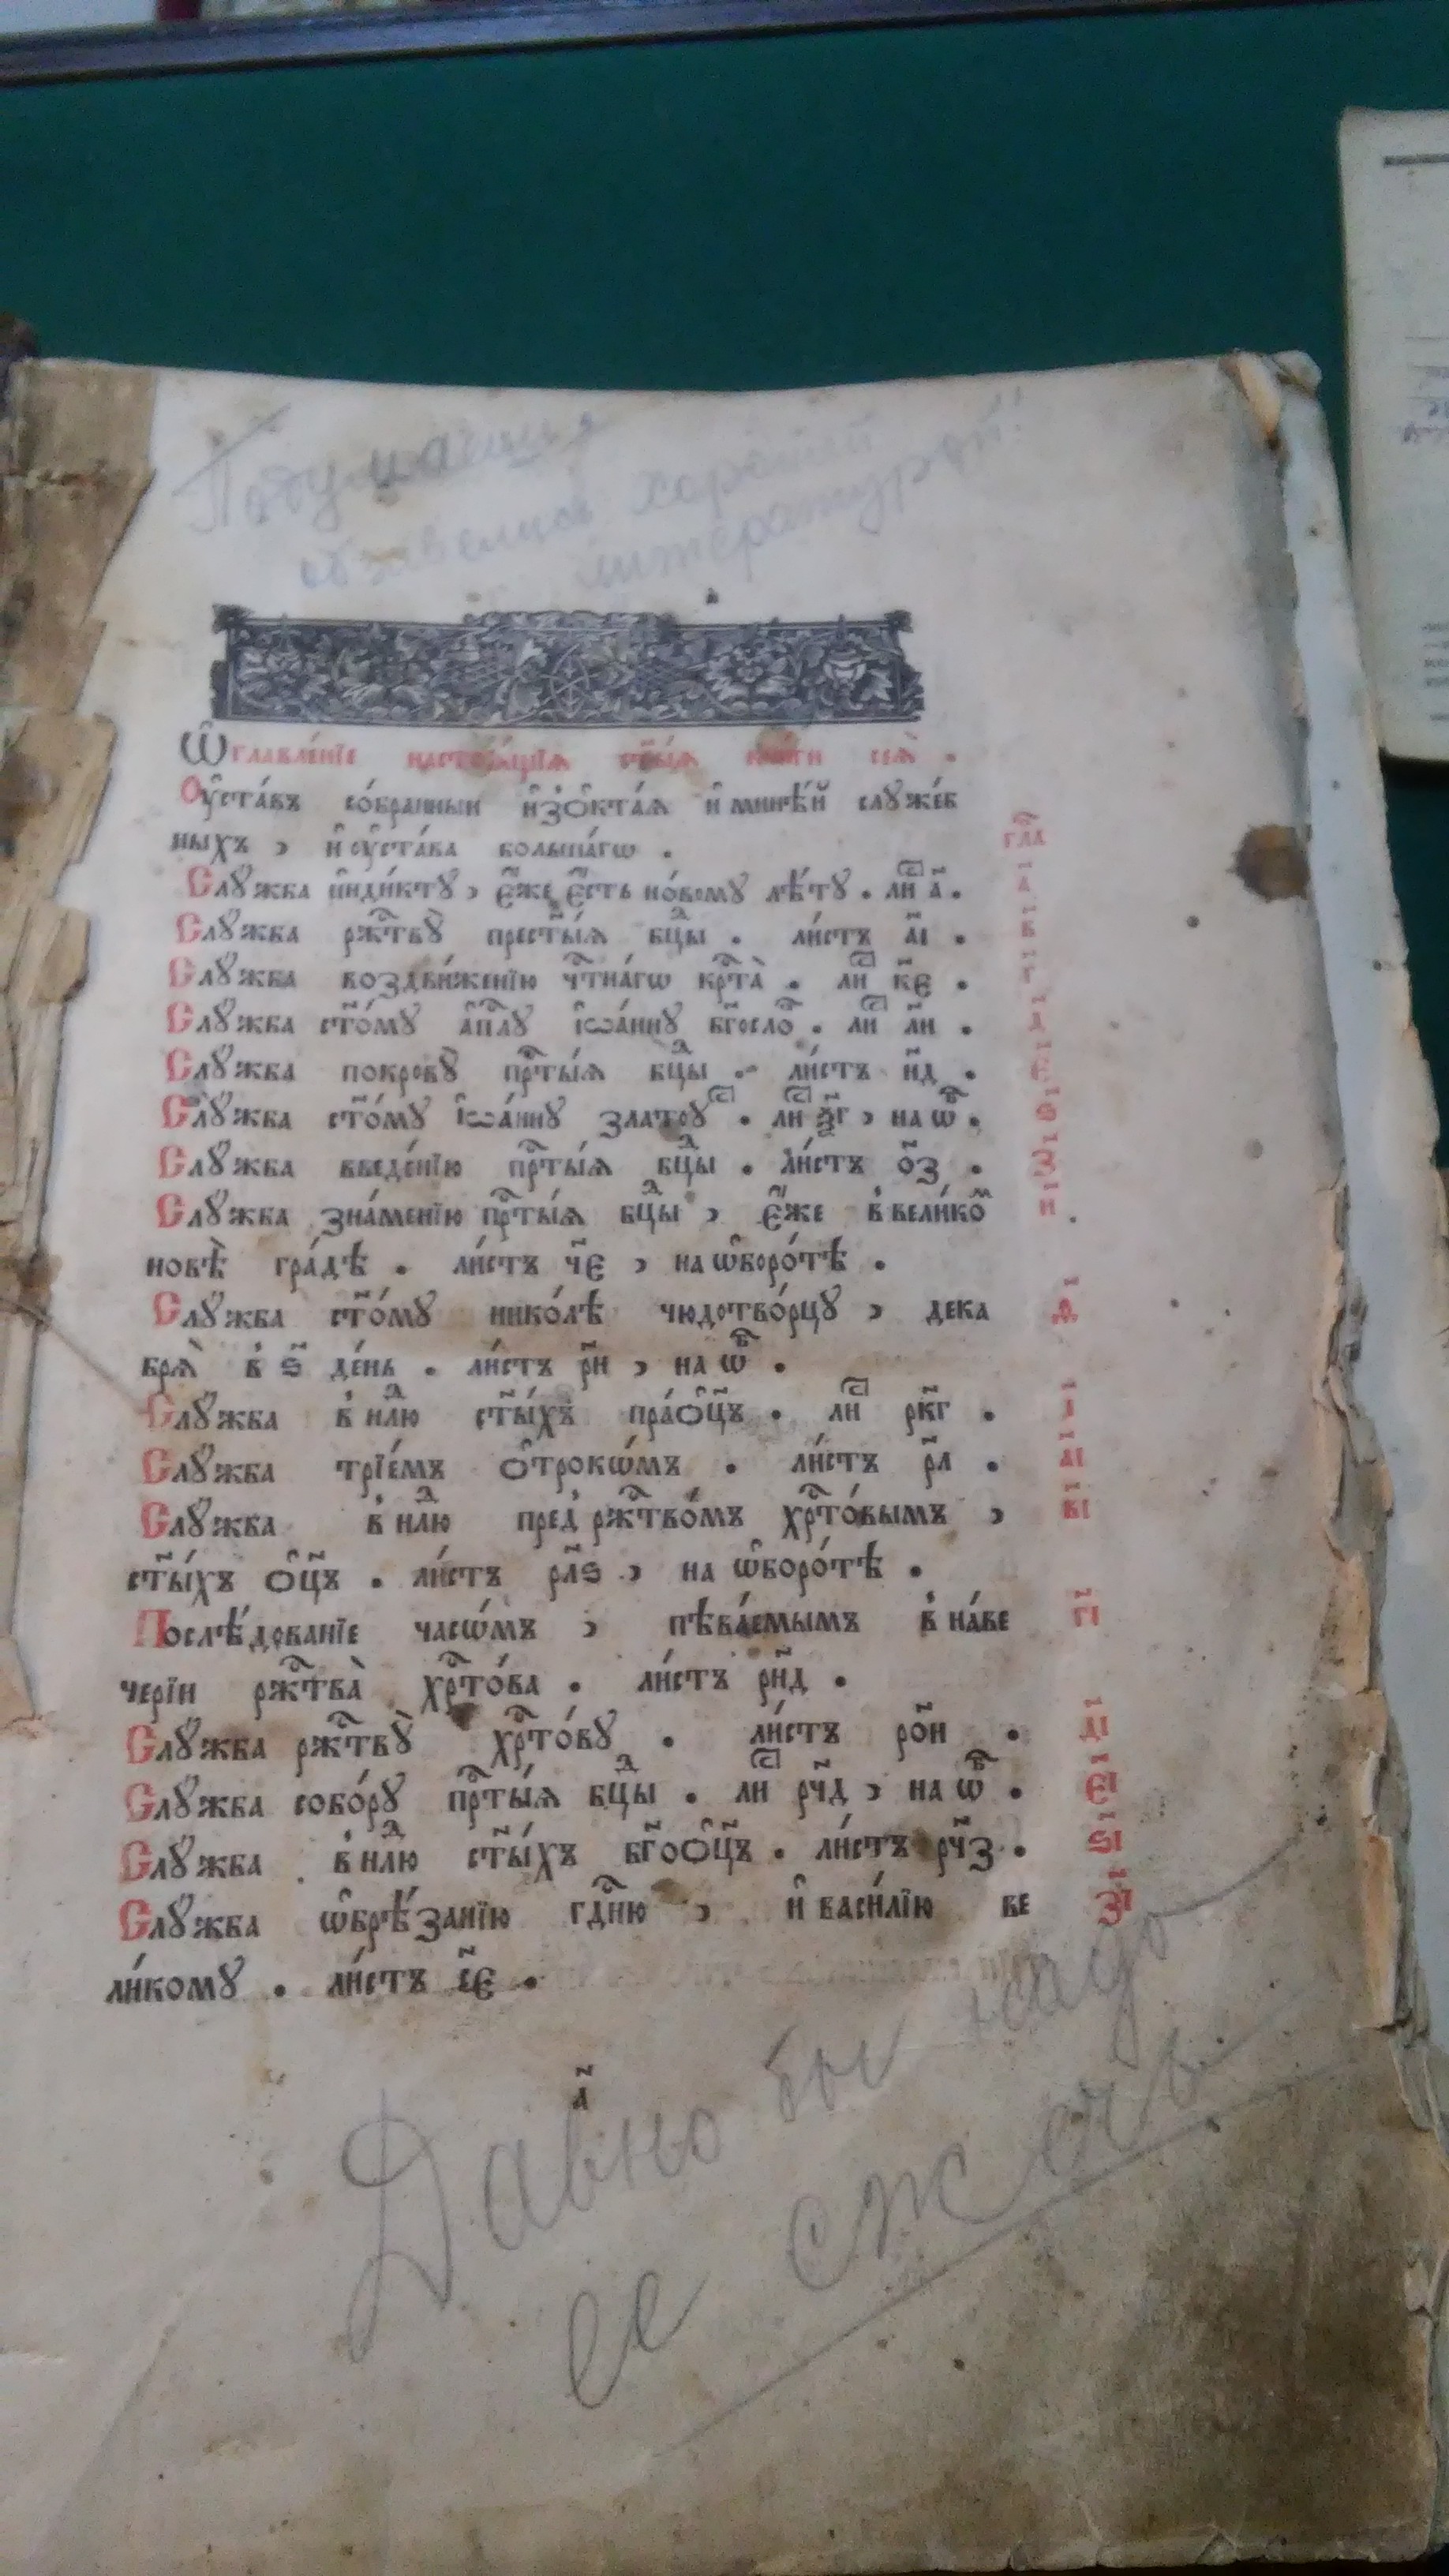 хорошей
литературой!
Ѡ҆главле́нїе настоѧ́щїѧ ст҃ы́ѧ кни́ги сеѧ̀ .
Оу҆ста́въ со́бранныи и҆з̾ ѻ҆кта́ѧ и҆ мине́й слꙋже́б
ныхъ , и҆ оу҆ста́ва большагѡ .
гл҃а
Слꙋ́жба и҆нди́ктꙋ , є҆́же є҆́сть но́вомꙋ лѣ́тꙋ . лиⷭ҇ а҃ . а҃
Слꙋ́жба рж҇твꙋ̀ прест҃ы́ѧ бцⷣы . ли́стъ а҃і . в҃
Слꙋ́жба воздви́женїю чⷭ҇тна́гѡ крⷭ҇та̀ . лиⷭ҇ к҃є . г҃
Слꙋ́жба ст҃о́мꙋ а҆пⷭ҇лꙋ і҆ѡа́ннꙋ бг҃осло́ . лиⷭ҇ л҃и . д҃
Слꙋ́жба покровꙋ̀ прⷭ҇ты́ѧ бцⷣы . ли́стъ н҃д . є҃
Слꙋ́жба ст҃о́мꙋ і҆ѡа́ннꙋ златоꙋⷭ҇ . лиⷭ҇ ѯ҃г , на ѡ҆б . ѕ҃
Слꙋ́жба введе́нїю прⷭ҇ты́ѧ бцⷣы . ли́стъ ѻ҃з . з҃
Слꙋ́жба зна́менїю прⷭ҇ты́ѧ бцⷣы , є҆́же в̾ вели́коⷨ и҃
новѣ̀ гра́дѣ . ли́стъ ч҃є , на ѡ҆боро́тѣ .
Слꙋ́жба ст҃о́мꙋ нико́лѣ чюдотво́рцꙋ , дека ѳ҃
брѧ̀ в̾ ѕ҃ де́нь . ли́стъ р҃и , на ѡ҆б .
Слꙋ́жба в̾ нлⷣю ст҃ы́хъ пра́ѻ҆ц҃ъ . лиⷭ҇ рк҃г . і҃
Слꙋ́жба трїе́мъ ѻ҆трокѡ́мъ . ли́стъ р҃л . а҃і
Слꙋ́жба в̾ нлⷣю пред̾ рж҇тво́мъ хрⷭ҇то́вымъ , в҃і
ст҃ы́хъ ѻ҆ц҃ъ . ли́стъ рл҃ѕ , на ѡ҆боро́тѣ .
Послѣ́дованїе часѡ́мъ , пѣва́емымъ в̾ на́ве г҃і
черїи рж҇тва̀ хрⷭ҇то́ва . ли́стъ рн҃д .
Слꙋ́жба рж҇твꙋ̀ хрⷭ҇то́вꙋ . ли́стъ ро҃и . д҃і
Слꙋ́жба собо́рꙋ прⷭ҇ты́ѧ бцⷣы . лиⷭ҇ рч҃д , на ѡ҆б . є҃і
Слꙋ́жба в̾ нлⷣю ст҃ы́хъ бг҃оѻ҆ц҃ъ . ли́стъ рч҃з . ѕ҃і
Слꙋ́жба ѡ҆брѣ́занїю гдⷭ҇ню , и҆ васи́лїю ве з҃і
ли́комꙋ . ли́стъ с҃є .
а҃
Давно бы надо
ее сжечь